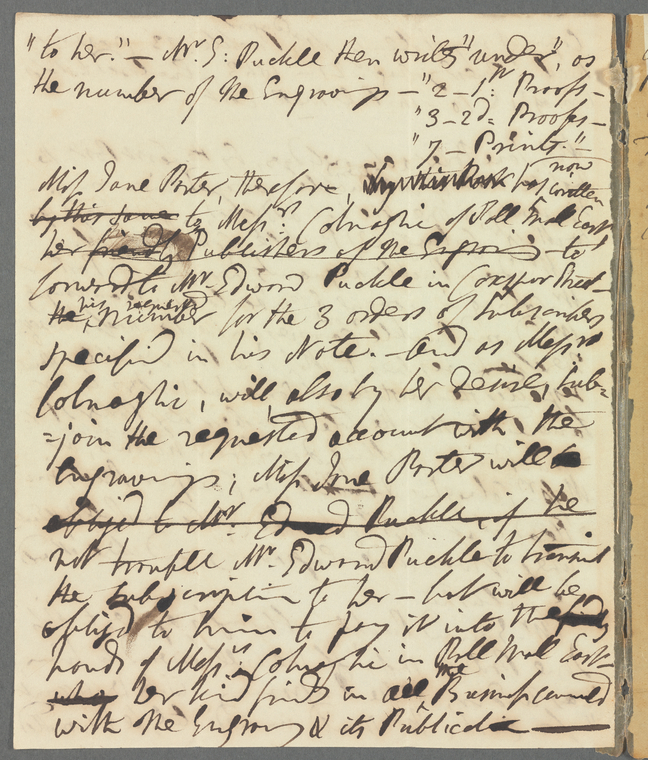 "to her." — Mr. E: Puckle then writes "under", as
the number of the Engravings — "2 — 1st: Proofs —
"3 — 2d: Proofs —
"7 — Prints." —
Miss Jane Porter, therefore, has now written
by this same to Messrs. Colnaghi of Pall Mall East
her friendly Publishers of the Engraving — to
forward to Mr. Edward Puckle in
the his requested number for the 3 orders of Subscribers
specified in his Note. — And as Messrs
Colnaghi, will, also by her desire, sub=
=join the requested account with the
Engravings; Miss Jane Porter will
obliged to Mr. Edward Puckle, if he
not trouble Mr. Edward Puckle to transmit
the subscription to her — but will be
obliged to him to pay it into the
hands of Messrs. Colnaghi in Pall Mall East —
who her kind friends in all the Business connected
with the Engraving & its